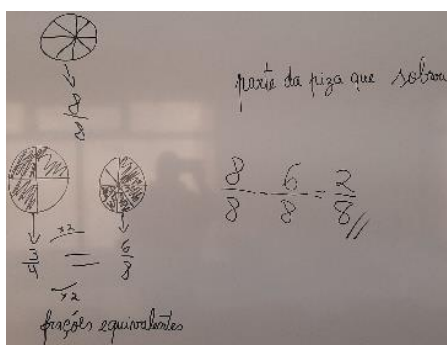 8/8
parte da piza que sobrou
8/8 - 6/8 = 2/8 //
x2
3/4 = 6/8
x2
frações equivalentes